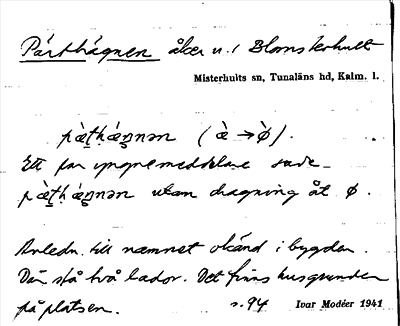 Pärthägnen åker u. / Blomsterhult
Misterhults sn, Tunaläns hd, Kalm. l.
pæ̀t̠hǽgnən (æ̀ → ø̀).
Ett par yngre meddelare sade
pæ̀t̠hǽgnən utan dragning åt ø.
Anledn. till namnet okänd i bygden.
Där stå två lador. Det finns husgrunder
på platsen. s. 94 Ivar Modéer 1941